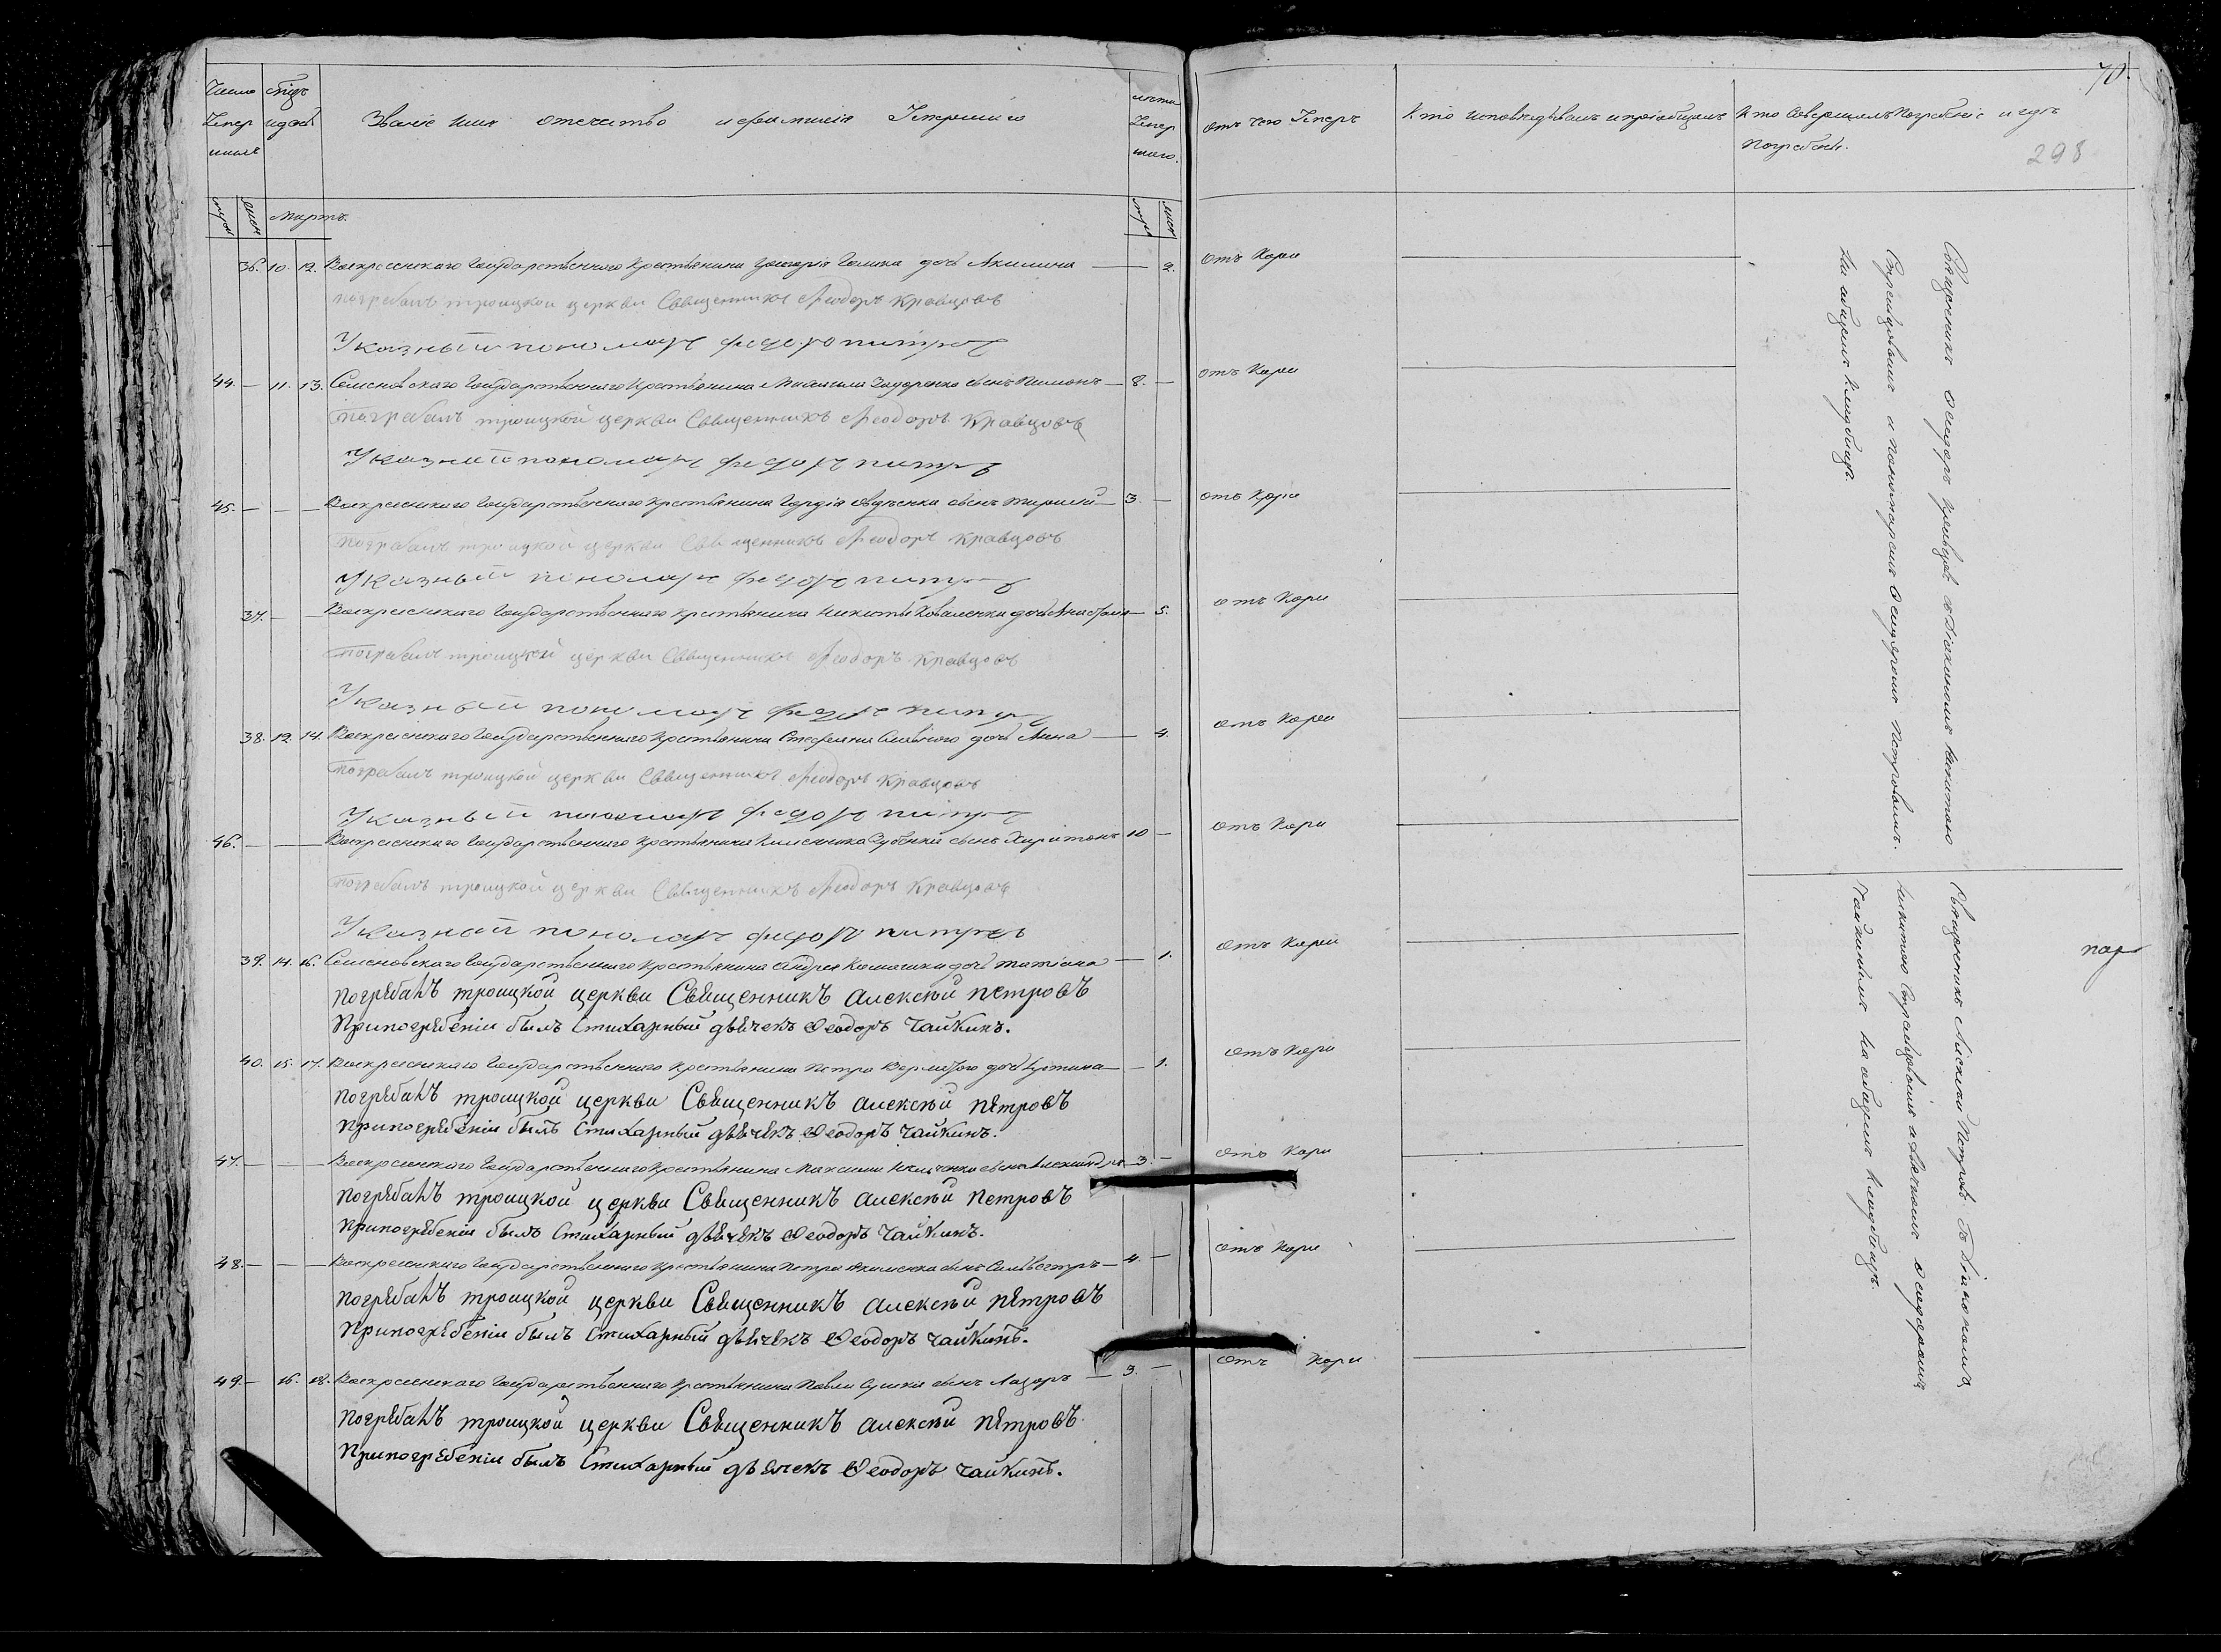 Число Умер шихъ
мѣсяцъ и день
Званіе имя отечество и фамилія Умершаго
лѣта Умер шаго.
отъ чего Умеръ
Кто исповѣдывалъ и пріобщалъ
Кто Совершалъ Погребеніе и гдѣ Погребенъ.
70.
298
муж
жен
Мартъ.
муж
жен
36. 10. 12. Воскресенскаго Государственнаго Крестьянина дочь Акилина — 2. отъ Кори
погребалъ троицкой церкви Священникъ Феодоръ Кравцовъ
Указный пономарь Федоръ питровъ
44. — 11. 13. Семеновскаго Государственнаго Крестьянина Михаила Задоренка сынъ Пименъ — 8. — отъ Кори
погребалъ троицкой церкви Священникъ Феодоръ Кравцовъ
Указный пономарь Федоръ питровъ
45. — — — Воскресенскаго Государственнаго Крестьянина Гордія сынъ — 3. — отъ Кори
погребалъ троицкой церкви Священникъ Феодоръ Кравцовъ
Указный пономарь Федоръ питровъ
37. — — Воскресенскаго Государственнаго Крестьянина Никиты Коваленка дочь Анастасія — 5. отъ Кори
погребалъ троицкой церкви Священникъ Феодоръ Кравцовъ
Указный пономарь Федоръ питровъ
38. 12. 14. Воскресенскаго Государственнаго Крестьянина Стефана дочь Анна — 4. отъ Кори
погребалъ троицкой церкви Священникъ Феодоръ Кравцовъ
Указный пономарь Федоръ питровъ
46. — — Воскресенскаго Государственнаго Крестьянина сынъ Харитонъ 10 — отъ Кори
погребалъ троицкой церкви Священникъ Феодоръ Кравцовъ
Указный пономарь Федоръ питровъ
39. 14. 16. Семеновскаго Государственнаго Крестьянина Андрея дочь татіана — 1. отъ Кори
погрѣбалЪ троицкой церкви СвященникЪ алексѣй петровЪ
Припогрѣбеніи былъ Стихарный дьячекъ Ѳеодоръ Чайкинъ.
40. 15. 17. Воскресенскаго Государственнаго Крестьянина Петра дочь — 1. отъ Кори
погрѣбалЪ троицкой церкви СвященникЪ алексѣй пѣтровЪ
Припогрѣбеніи былъ Стихарный дьячекъ Ѳеодоръ Чайкинъ.
47. — — — Воскресенскаго Государственнаго Крестьянина Максима сынъ Александръ — 3. — отъ Кори
погрѣбалЪ троицкой церкви СвященникЪ алексѣй петровЪ
Припогрѣбеніи былъ Стихарный дьячекъ Ѳеодоръ Чайкинъ.
48. — — — Воскресенскаго Государственнаго Крестьянина Петра Якименка сынъ Сильвестръ — 4. — отъ Кори
погрѣбалЪ троицкой церкви СвященникЪ алексѣй пѣтровЪ
Припогрѣбеніи былъ Стихарный дьячекъ Ѳеодоръ чайкинъ.
49. — 16. 18. Воскресенскаго Государственнаго Крестьянина Павла сынъ Лазарь — 3. — отъ Кори
погрѣбалЪ троицкой церкви СвященникЪ алексѣй пѣтровЪ.
Припогрѣбеніи былъ Стихарный дьячекъ Ѳеодоръ чайкинъ.
Священникъ Ѳеодоръ Кравцовъ съ Діакономъ Никитою
Стрельцовымъ и пономаремъ Ѳеодоромъ Петровымъ.
на общемъ Кладбищѣ.
Священникъ Алексѣй Петровъ съ Діакономъ
Никитою Стрельцовымъ и дьячкомъ Ѳеодоромъ
Чайкинымъ на общемъ Кладбищѣ.